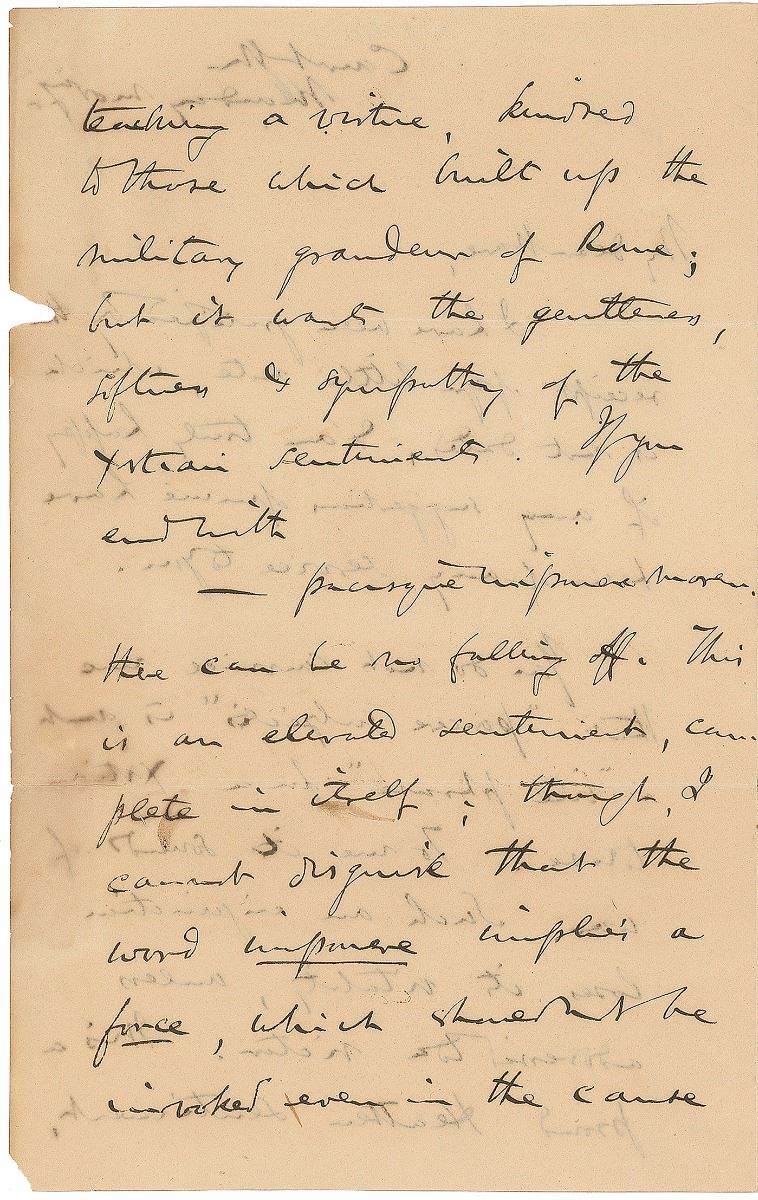 teaching a virtue, kindred
to those which built up the
military grandeur of Rome;
but it wants the gentleness,
softness & sympathy of the
Xstian sentiments. If you
end with
— pacisque imponere morem.
there can be no falling off. This
is an elevated sentiment, com-
plete in itself; though, I
cannot disguise that the
word imponere implies a
force, which should not be
invoked even in the cause